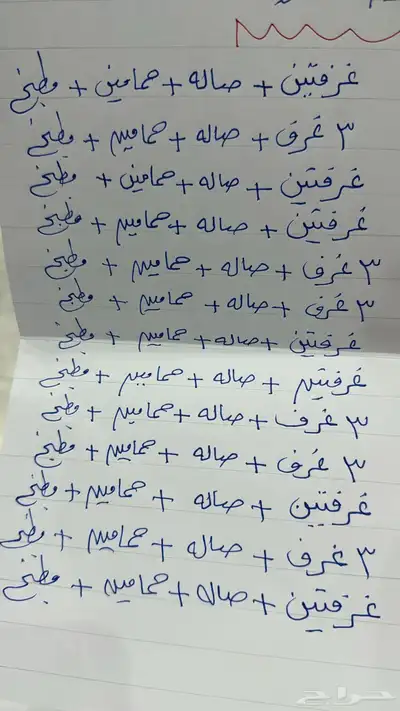 غرفتين + صاله + حمامين + مطبخ
٣ غرف + صاله + حمامين + مطبخ
غرفتين + صاله + حمامين + مطبخ
غرفتين + صاله + حمامين + مطبخ
٣ غرف + صاله + حمامين + مطبخ
٣ غرف + صاله + حمامين + مطبخ
غرفتين + صاله + حمامين + مطبخ
غرفتين + صاله + حمامين + مطبخ
٣ غرف + صاله + حمامين + مطبخ
٣ غرف + صاله + حمامين + مطبخ
غرفتين + صاله + حمامين + مطبخ
٣ غرف + صاله + حمامين + مطبخ
غرفتين + صاله + حمامين + مطبخ
حراج